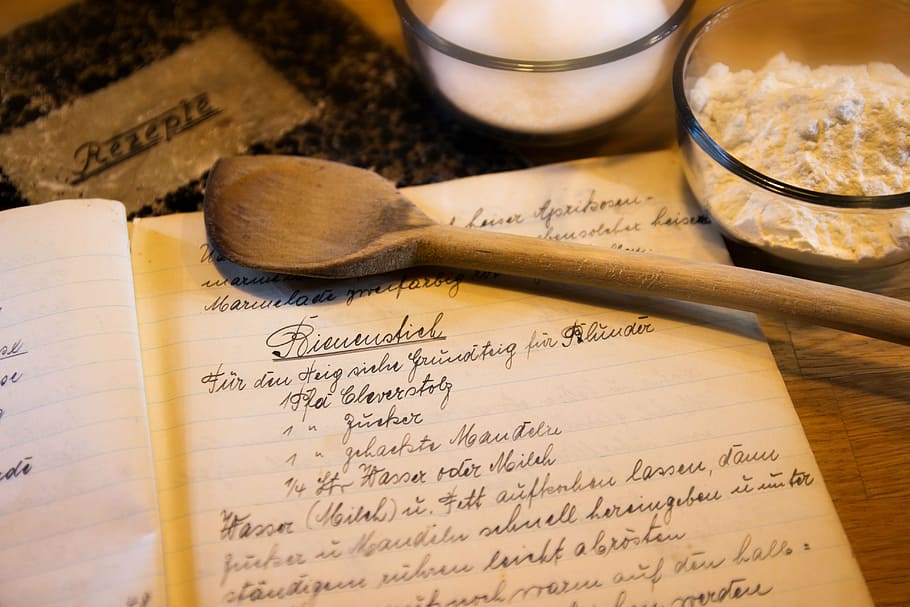 Rezepte
einer Aprikosen-
ebensolcher heisen
Marmelade zweifarbig
Bienenstich
Für den Teig siehe Grundteig für Plunder
1 Pfd Cleverstolz
1 " Zucker
1 " gehackte Mandeln
1/4 Ltr Wasser oder Milch
Wasser (Milch) u. Fett aufkochen lassen, dann
Zucker u Mandeln schnell hereingeben u unter
ständigem rühren leicht abrösten
noch warm auf den halb-
werden